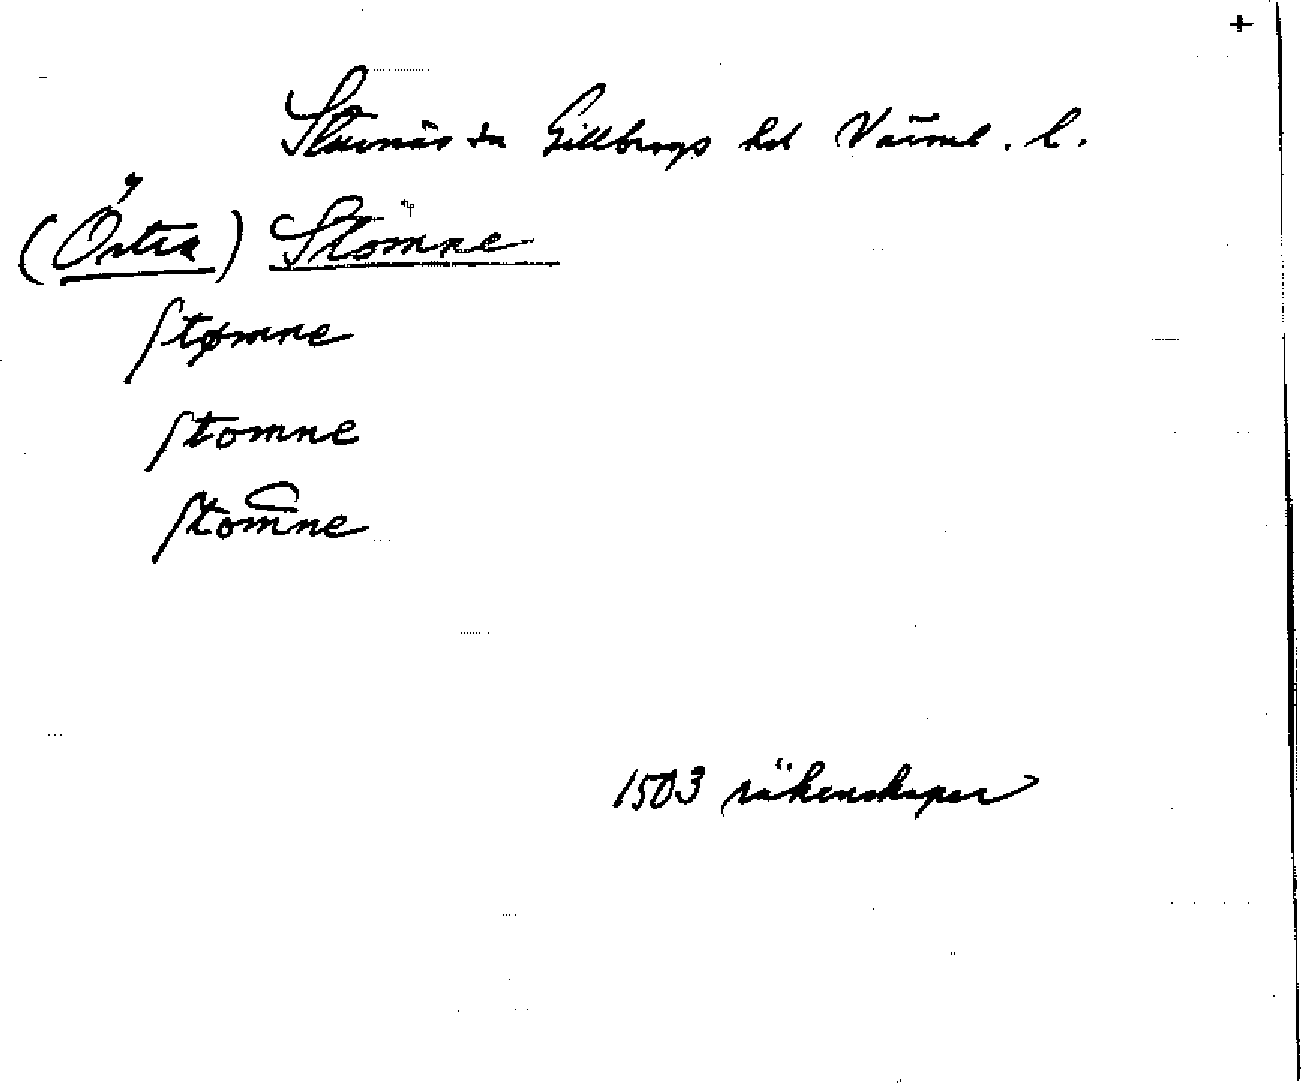 +
Stavnäs sn Gillbergs hd Värml. l.
(Östra) Stomne
ſtømne
ſtomne
ſtom̄ne
1503 räkenskaper